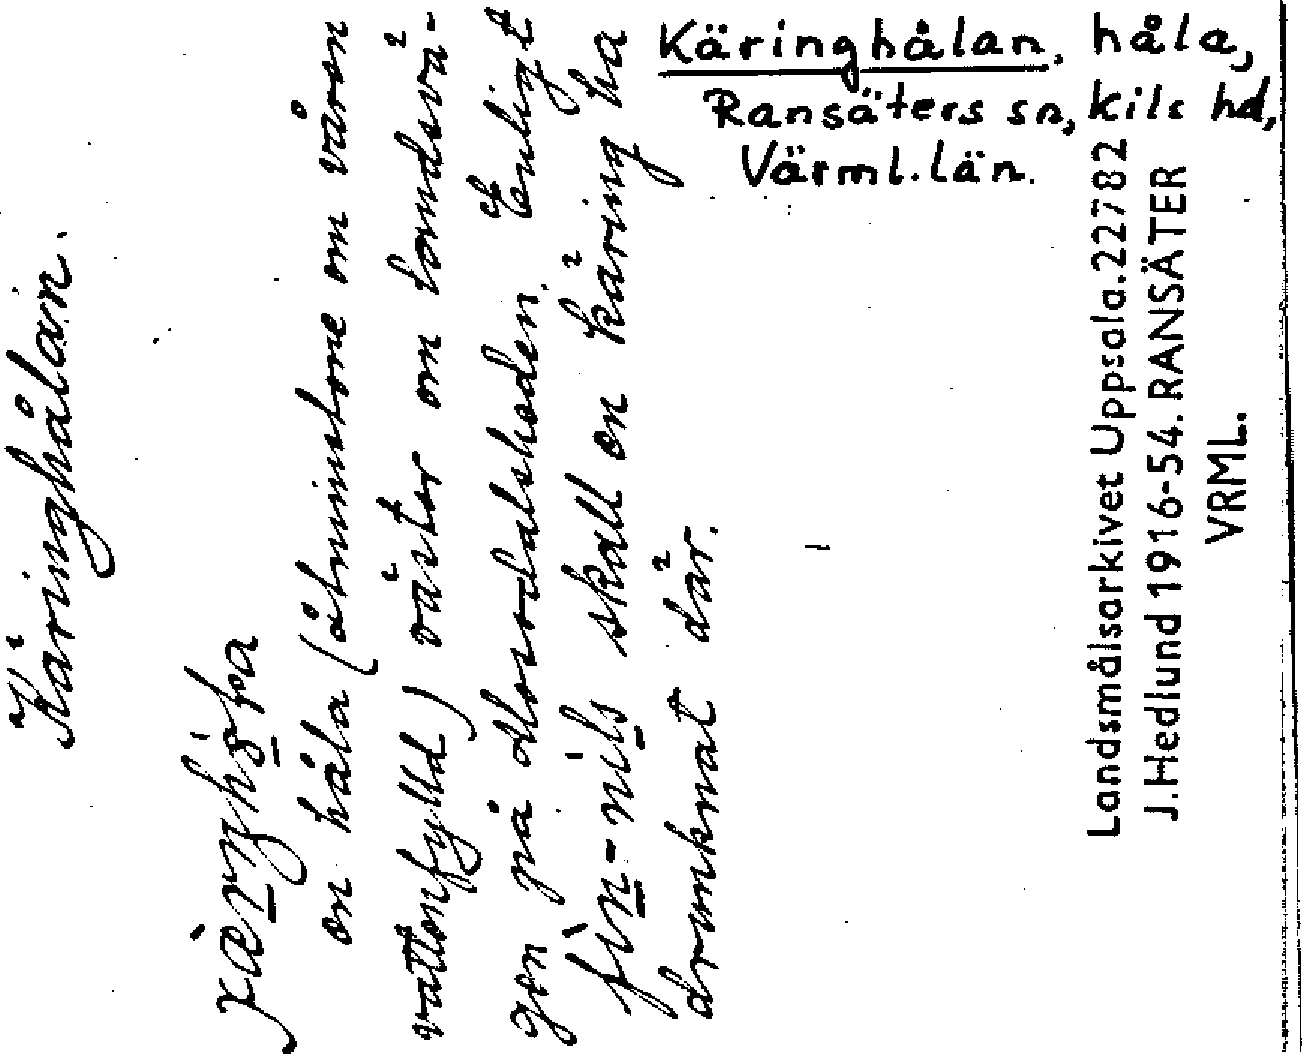 Käringhålan, håla,
Ransäters sn, Kils hd,
Värml. län.
Käringhålan.
en håla (åtminstone om våren
vattenfylld) väster om landsvä-
gen på Norrdalsheden. Enligt
fin-nils skall en käring ha
drunknat där.
Landsmålsarkivet Uppsala. 22782
J. Hedlund 1916-54. RANSÄTER
VRML.